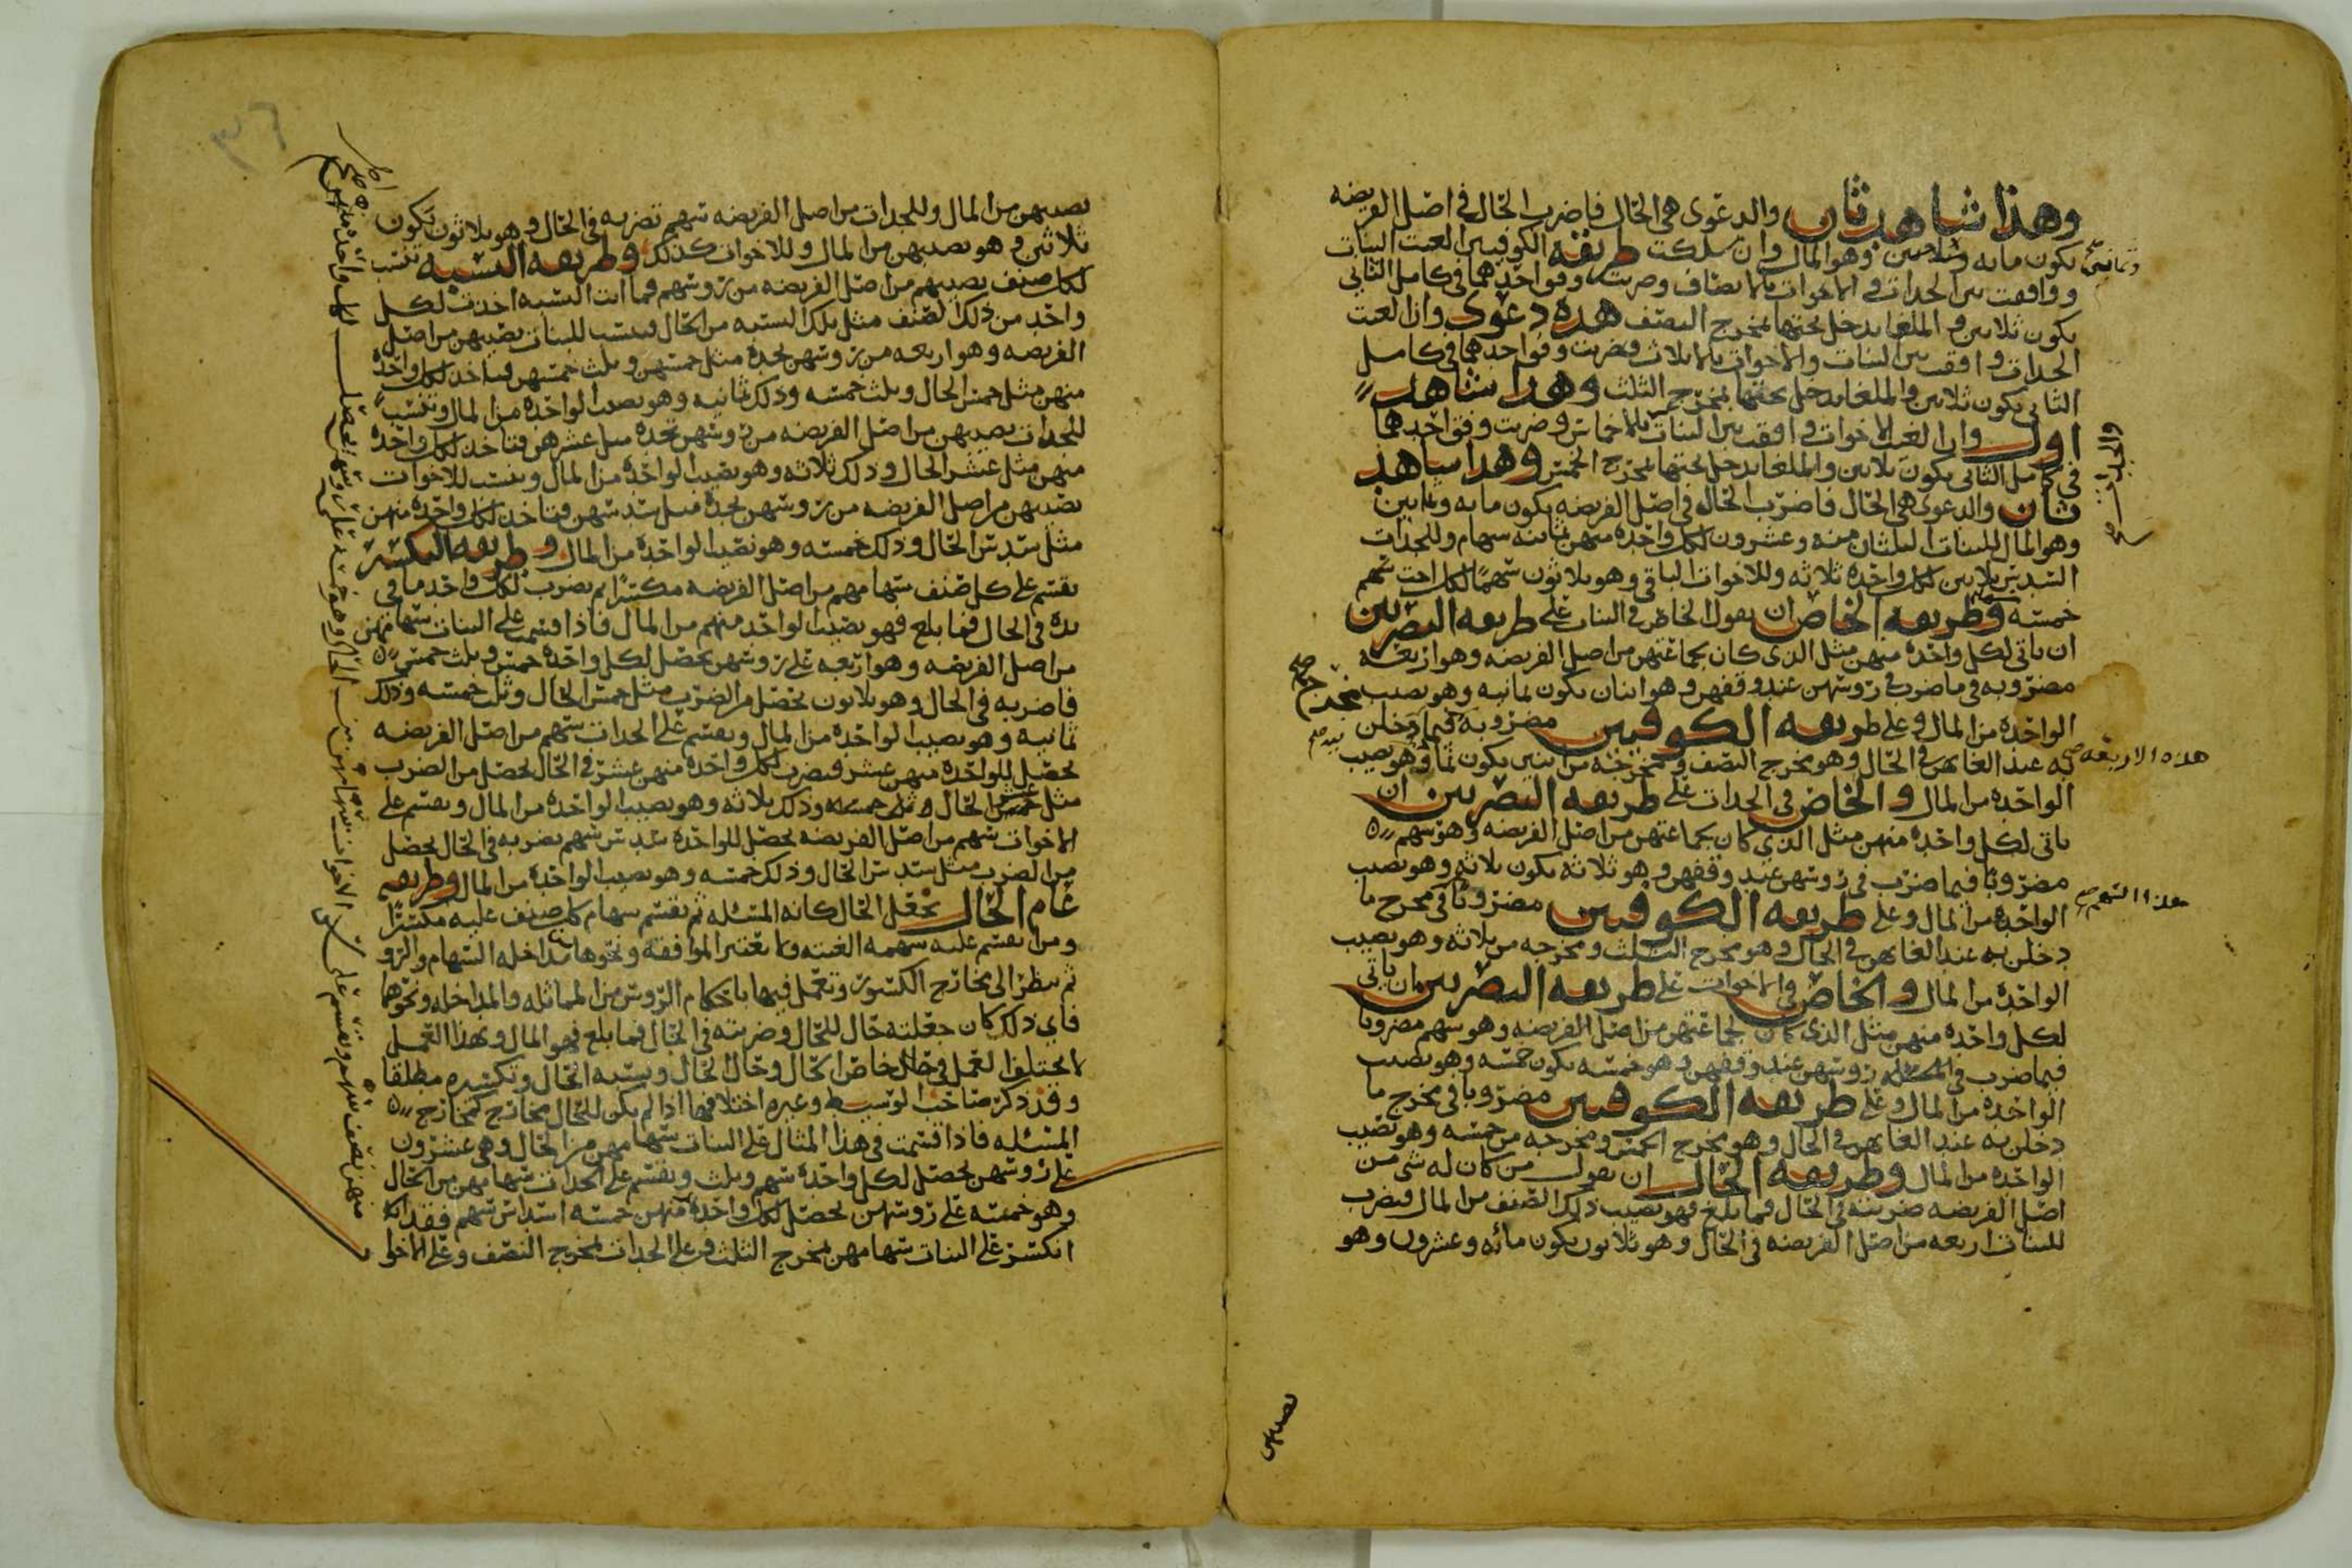 وهذا شاهد ثان والدعوى هي الحال فاضرب الحال في اصل الفريضه
يكون مايه وثلاثين وهو المال وان سلكت طريقة الكوفيين الغيت البنات
ووافقت بين الجدات والاخوات بالانصاف وضربت وفق احدهما في كامل الثاني
يكون ثلاثين والملغا يدخل تحتها بمخرج النصف هذه دعوى واذا الغيت
الجدات وافقت بين البنات والاخوات بالاثلاث وضربت وفق احدهما في كامل
الثاني يكون ثلاثين والملغا يدخل تحتها بمخرج الثلث وهذا شاهد
اول وان الغيت الاخوات وافقت بين البنات بالاخماس وضربت وفق احدهما
في كامل الثاني يكون ثلاثين والملغا يدخل تحتها بمخرج الخمس وهذا شاهد
ثان والدعوى هي الحال فاضرب الحال في اصل الفريضه يكون مايه وثمانين
وهو المال للبنات الثلثان ميه وعشرون لكل واحده منهن ثمانيه سهام وللجدات
السدس ثلاثين لكل واحده ثلاثه وللاخوات الباقي وهو ثلاثون سهما لكل اخت سهم
خمسه وطريقه الخاص ان يقول الخاص في البنات على طريقه البصريين
ان ياتي لكل واحده منهن مثل الذي كان لجماعتهن من اصل الفريضه وهو اربعه
مضروبه في ما ضرب في روسهن عند وفقهن وهو اثنان يكون ثمانيه وهو نصيب
الواحده من المال وعلى طريقه الكوفيين مضروبه فيما دخلن
به عند الغايهن في الحال وهو مخرج النصف ومخرجه من اثنين يكون ثمانيه وهو نصيب
الواحده من المال والخاص في الجدات على طريقه البصريين ان
ياتي لكل واحده منهن مثل الذي كان لجماعتهن من اصل الفريضه وهو سهم
مضروبا فيما ضرب في روسهن عند وفقهن وهو ثلاثه يكون ثلاثه وهو نصيب
الواحده من المال وعلى طريقه الكوفيين مضروبا في مخرج ما
دخلن به عند الغايهن في الحال وهو مخرج الثلث ومخرجه من ثلاثه وهو نصيب
الواحده من المال والخاص في الاخوات على طريقه البصريين ان ياتي
لكل واحده منهن مثل الذي كان لجماعتهن من اصل الفريضه وهو سهم مضروبا
فيما ضرب في روسهن عند وفقهن وهو خمسه يكون خمسه وهو نصيب
الواحده من المال وعلى طريقه الكوفيين مضروبا في مخرج ما
دخلن به عند الغايهن في الحال وهو مخرج الخمس ومخرجه من خمسه وهو نصيب
الواحده من المال وطريقه الحال ان يقول من كان له شي من
اصل الفريضه ضربته في الحال فما بلغ فهو نصيب ذلك الصنف من المال فيضرب
للبنات اربعه من اصل الفريضه في الحال وهو ثلاثون يكون مائه وعشرون وهو
وثمانين صح
والجدات صح
هذه الاربعه صح
هذا السهم صح
نصيبهن
٣٦
نصيبهن من المال وللجدات من اصل الفريضه سهم تضربه في الحال وهو ثلاثون تكون
ثلاثين وهو نصيبهن من المال وللاخوات كذلك وطريقه النسبه تنسب
لكل صنف نصيبهم من اصل الفريضه من روسهم فما اتت النسبه اخذت لكل
واحد من ذلك الصنف مثل تلك النسبه من الحال فتنسب للبنات نصيبهن من اصل
الفريضه وهو اربعه من روسهن تجده مثل خمسهن وثلث خمسهن فتاخذ لكل واحده
منهن مثل خمس الحال وثلث خمسه وذلك ثمانيه وهو نصيب الواحده من المال وتنسب
للجدات نصيبهن من اصل الفريضه من روسهن تجده مثل عشرهن فتاخذ لكل واحده
منهن مثل عشر الحال وذلك ثلاثه وهو نصيب الواحده من المال وتنسب للاخوات
نصيبهن من اصل الفريضه من روسهن تجده مثل سدسهن فتاخذ لكل واحده منهن
مثل سدس الحال وذلك خمسه وهو نصيب الواحده من المال وطريقه التكسير
تقسم على كل صنف سهامهم من اصل الفريضه مكسرا ثم تضرب لكل واحد ما في
يده في الحال فما بلغ فهو نصيب الواحد منهم من المال فاذا قسمت على البنات سهامهن
من اصل الفريضه وهو اربعه على روسهن يحصل لكل واحده خمس وثلث خمس
فاضربه في الحال وهو ثلاثون تحصل من الضرب مثل خمس الحال وثلث خمسه وذلك
ثمانيه وهو نصيب الواحده من المال وتقسم على الجدات سهم من اصل الفريضه
يحصل للواحده منهن عشر فتضرب لكل واحده منهن عشر في الحال تحصل من الضرب
مثل عشر الحال وذلك ثلاثه وهو نصيب الواحده من المال وتقسم على
الاخوات سهم من اصل الفريضه يحصل للواحده سدس سهم تضربه في الحال تحصل
من الضرب مثل سدس الحال وذلك خمسه وهو نصيب الواحده من المال وطريقه
عام الحال تجعل الحال كانه المسئله ثم تقسم سهام كل صنف عليه مكسرا
ومن انقسم عليه سهمه الغيته ولا تعتبر الموافقه ونحوها مداخله السهام والرو
ثم تنظر الى مخارج الكسور وتعمل فيها باحكام الروس من المماثله والمداخله ونحوهما
فاي ذلك كان جعلته حال للحال وضربته في الحال فما بلغ فهو المال وبهذا العمل
لا يختلف العمل في حال خاص الحال وحال الحال ونسبه الحال وتكسيره مطلقا
وقد ذكر صاحب الوسيط وغيره اختلافهما اذا لم يكن للحال مخارج كمخارج
المسئله فاذا قسمت في هذا المثال على البنات سهامهن من الحال وهي عشرون
على روسهن يحصل لكل واحده سهم وثلث وتقسم على الجدات سهامهن من الحال
وهو خمسه على روسهن يحصل لكل واحده منهن خمسه اسداس سهم فقد
انكسر على البنات سهامهن بمخرج الثلث وعلى الجدات بمخرج النصف وعلى الاخوا
منهن نصف سهم وتقسم على الاخوات سهامهن من الحال وهو خمسه على روسهن يحصل لكل واحده منهن